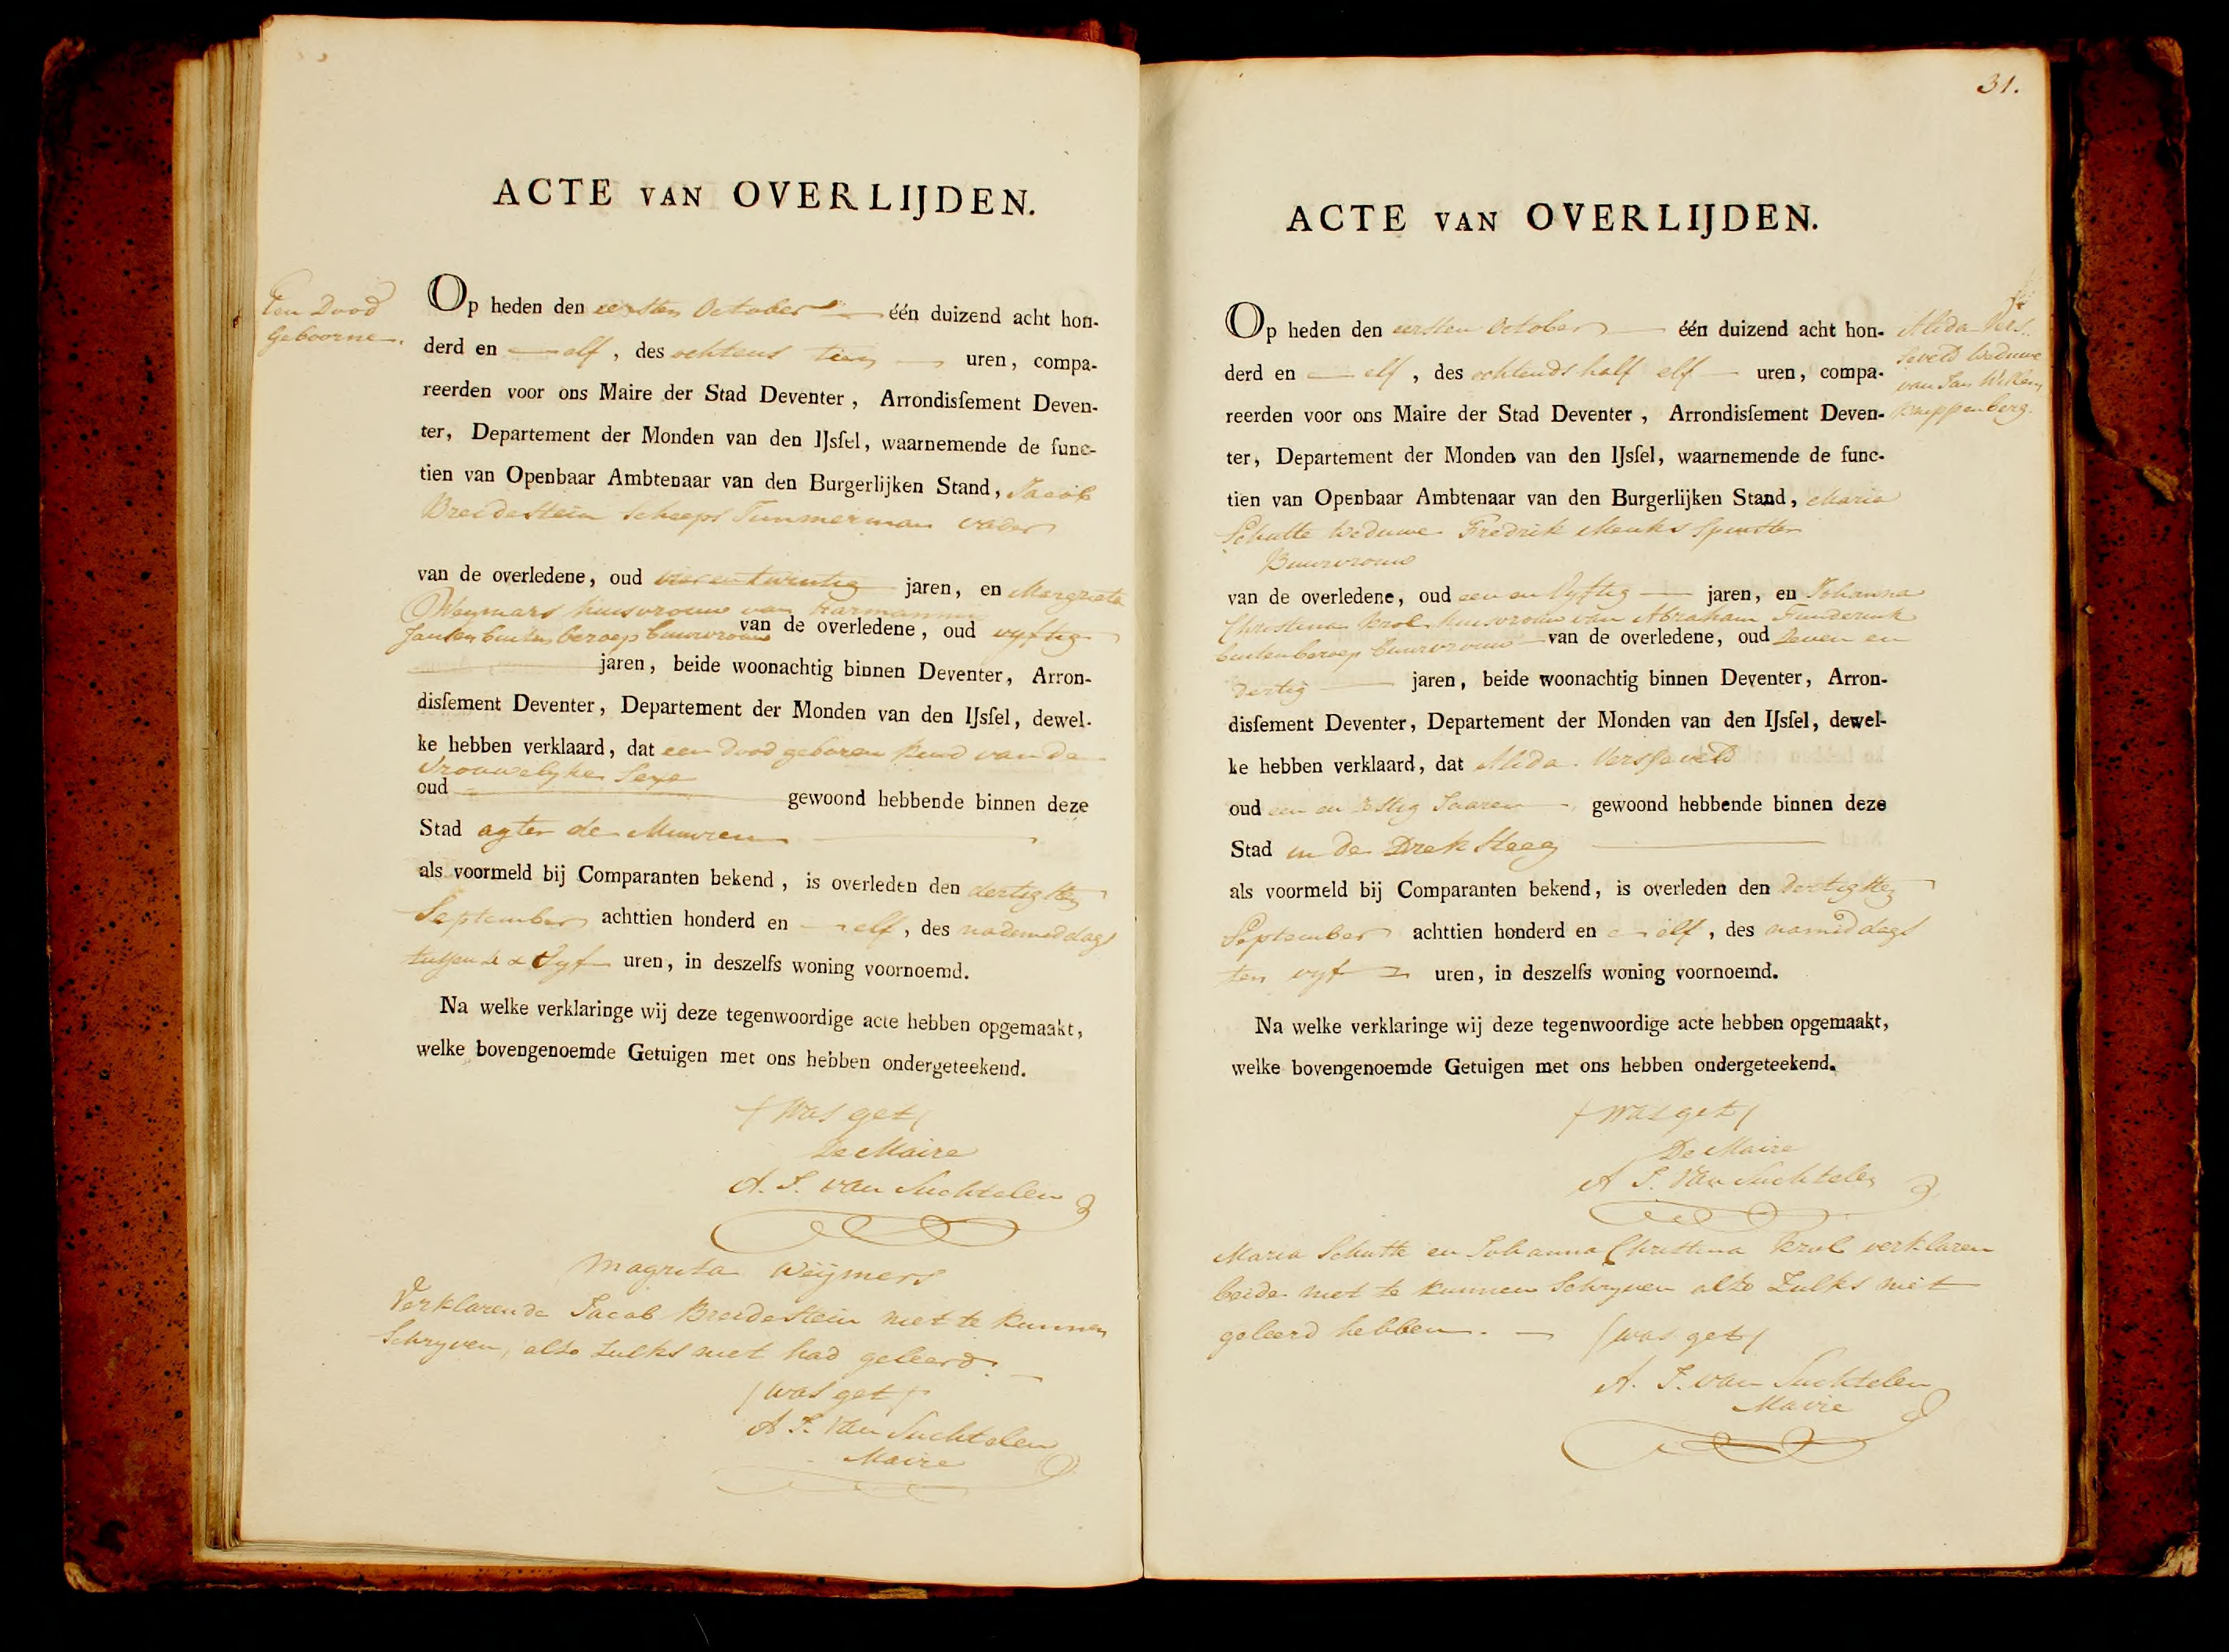 ACTE VAN OVERLIJDEN.
Een Dood
Geboorne.
Op heden den eersten October één duizend acht hon-
derd en elf, des ochtens tien uren, compa-
reerden voor ons Maire der Stad Deventer, Arrondisſement Deven-
ter, Departement der Monden van den IJsſel, waarnemende de func-
tien van Openbaar Ambtenaar van den Burgerlijken Stand, Jacob
Breidestein Scheeps Timmerman vader
van de overledene, oud vier en twintig jaren, en Margrieta
Weymars huisvrouw van Harmannus
Jansen buiten beroep buurvrouw van de overledene, oud vyftig
jaren, beide woonachtig binnen Deventer, Arron-
disſement Deventer, Departement der Monden van den IJsſel, dewel-
ke hebben verklaard, dat een dood geboren kind van de
Vrouwelyke Sexe
oud gewoond hebbende binnen deze
Stad agter de Muuren
als voormeld bij Comparanten bekend, is overleden den dertigsten
September achttien honderd en elf, des nademiddags
tussen 4 & Vyf uren, in deszelfs woning voornoemd.
Na welke verklaringe wij deze tegenwoordige acte hebben opgemaakt,
welke bovengenoemde Getuigen met ons hebben ondergeteekend.
/ Was get /
De Maire
A. J. van Suchtelen
Magrita Weijmers
Verklarende Jacob Breidestein niet te kunnen
Schryven, also zulks niet had geleerd.
/ was get /
A J. Van Suchtelen
Maire
31.
ACTE VAN OVERLIJDEN.
Alida Vers-
seveld Weduwe
van Jan Willem
Knippenberg.
Op heden den eersten October één duizend acht hon-
derd en elf, des ochtends half elf uren, compa-
reerden voor ons Maire der Stad Deventer, Arrondisſement Deven-
ter, Departement der Monden van den IJsſel, waarnemende de func-
tien van Openbaar Ambtenaar van den Burgerlijken Stand, Maria
Schutte Weduwe Fredrik Menks Spinster
Buurvrouw
van de overledene, oud een en Vyftig jaren, en Johanna
Christina Krol huisvrouw van Abraham
buiten beroep buurvrouw van de overledene, oud Zeven en
Dertig jaren, beide woonachtig binnen Deventer, Arron-
disſement Deventer, Departement der Monden van den IJsſel, dewel-
ke hebben verklaard, dat Alida Versseveld
oud een en Zestig Jaaren gewoond hebbende binnen deze
Stad in de Drek Steeg
als voormeld bij Comparanten bekend, is overleden den Dertigsten
September achttien honderd en elf, des namiddags
ten vyf uren, in deszelfs woning voornoemd.
Na welke verklaringe wij deze tegenwoordige acte hebben opgemaakt,
welke bovengenoemde Getuigen met ons hebben ondergeteekend.
/ was get /
De Maire
A J. Van Suchtelen
Maria Schutte en Johanna Christina Krol verklaren
beide niet te kunnen Schryven also Zulks niet
geleerd hebben. / was get /
A. J. van Suchtelen
Maire